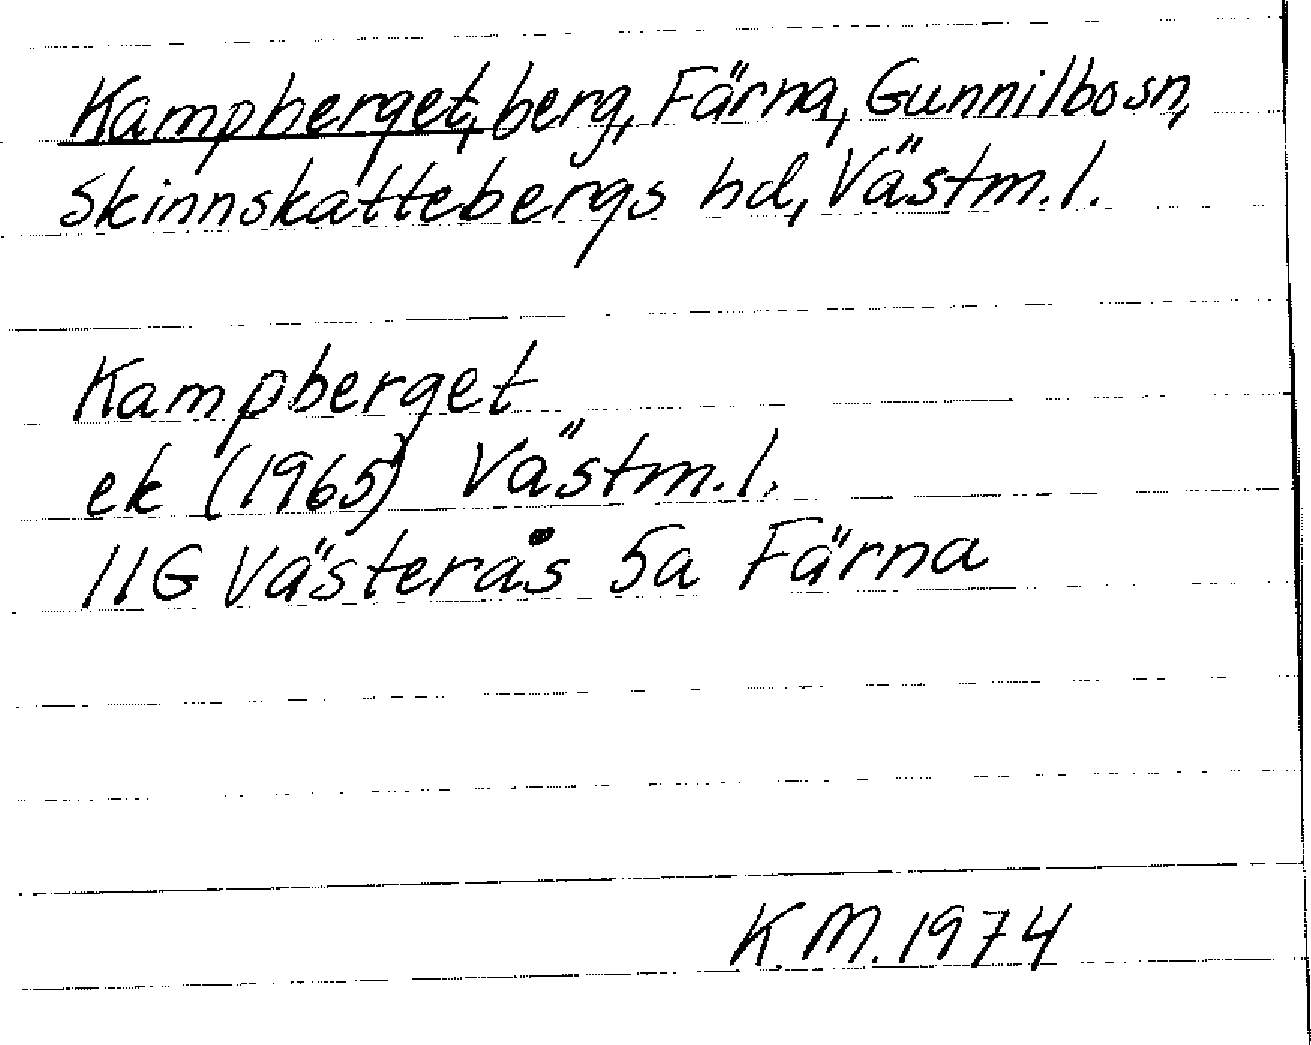 Kampberget, berg, Färna, Gunnilbo sn,
Skinnskattebergs hd, Västm. l.
Kampberget
ek (1965) Västm. l.
11G Västerås 5a Färna
K.M. 1974